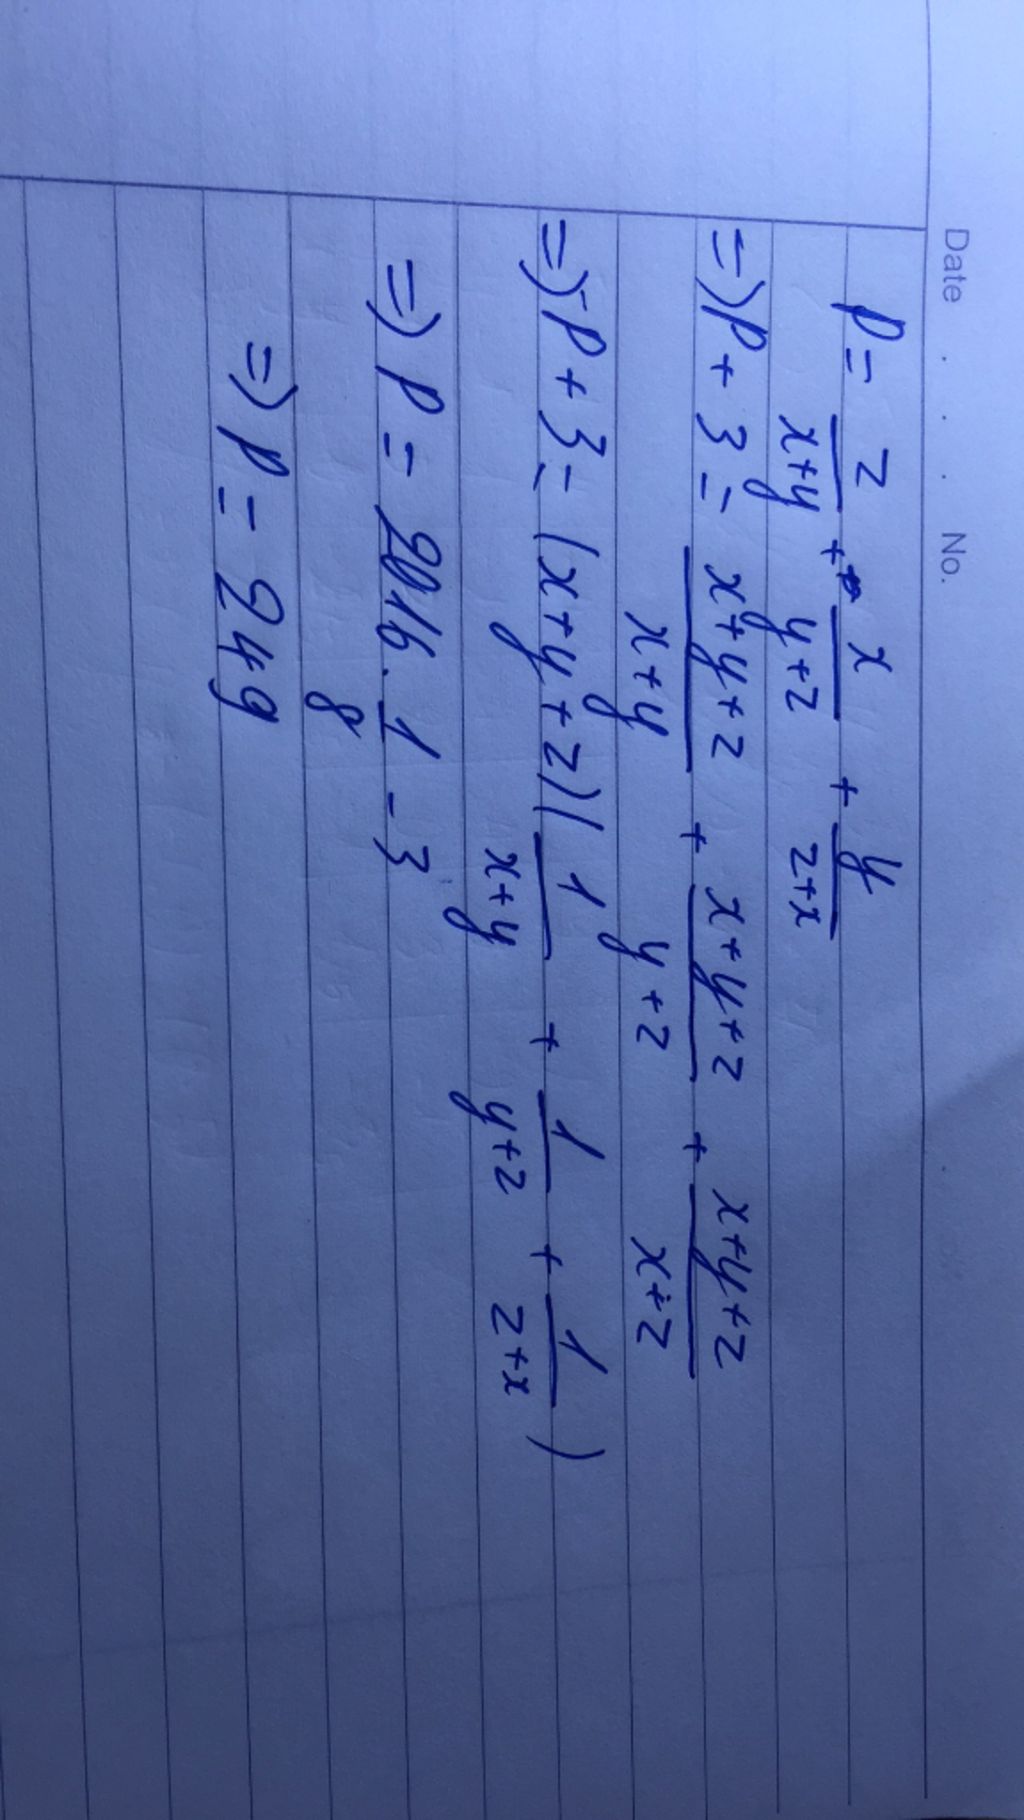 Date . . . No.
P = z/(x+y) + x/(y+z) + y/(z+x)
=) P + 3 = (x+y+z)/(x+y) + (x+y+z)/(y+z) + (x+y+z)/(x+z)
=) P + 3 = (x+y+z)(1/(x+y) + 1/(y+z) + 1/(z+x))
=) P = 2016. 1/8 - 3
=) P = 249